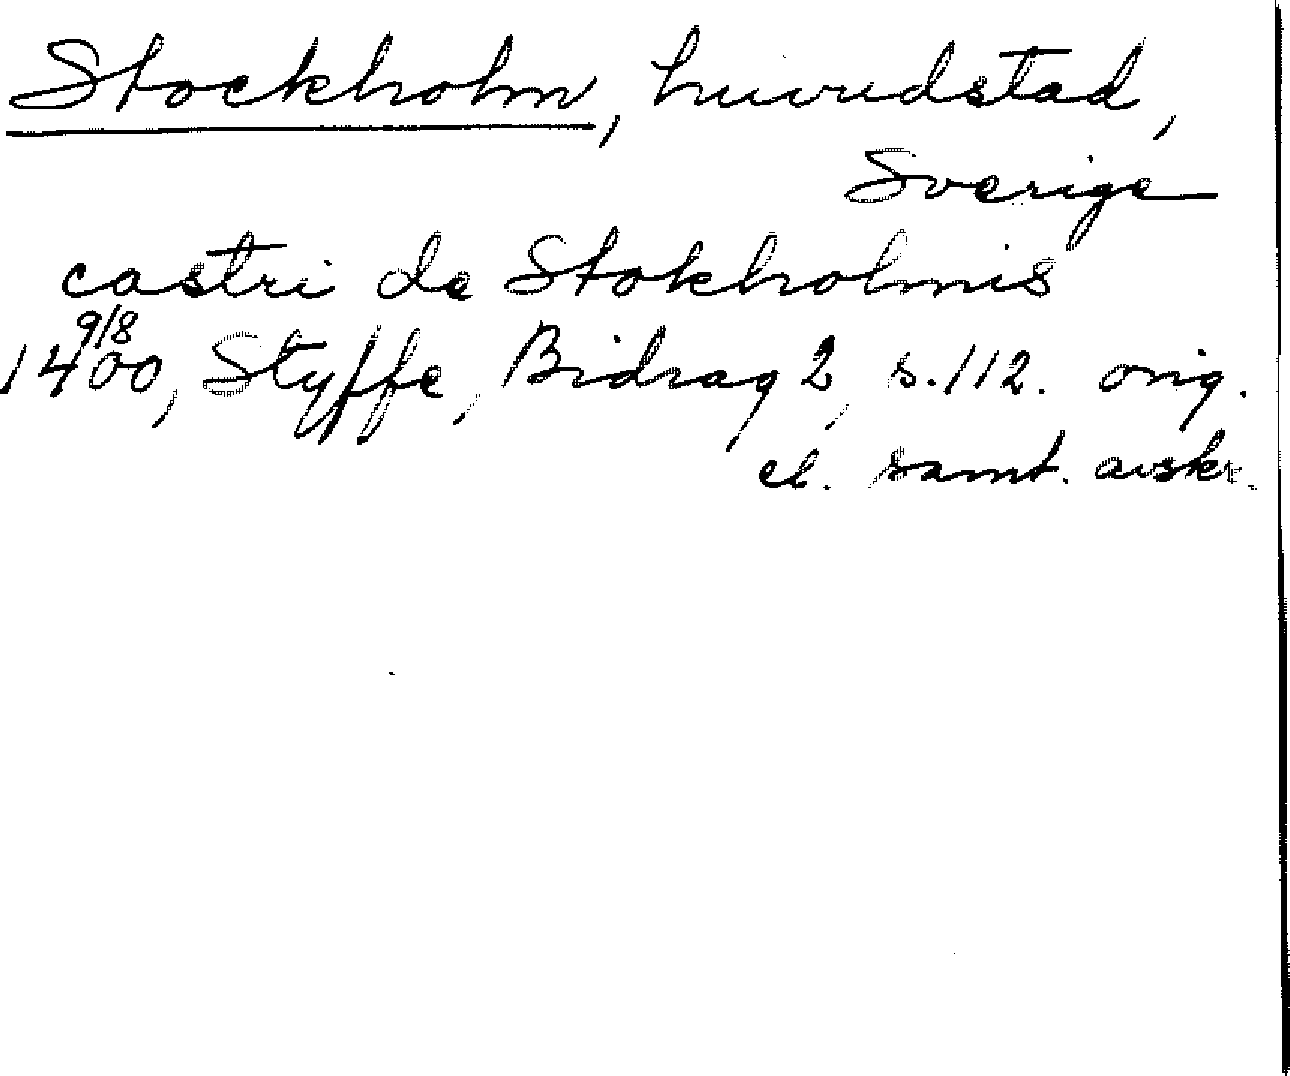 Stockholm, huvudstad,
Sverige
castri de Stokholmis
9/8
1400, Styffe, Bidrag 2, s. 112. orig.
el. samt. avskr.